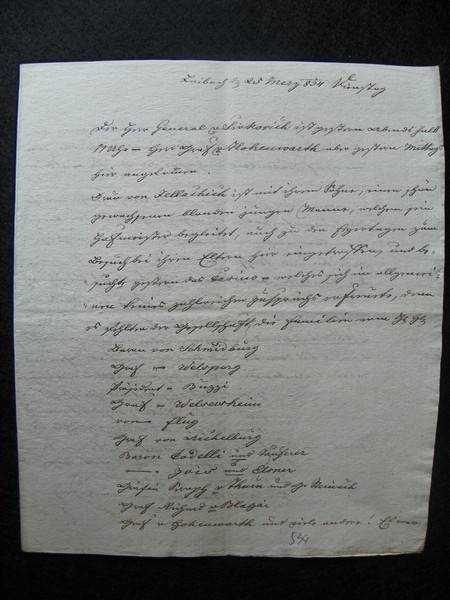 Laibach d 25 Merz 834 Dienstag
Der Herr General v Siukovich ist gestern Abends halb
11 Uhr – Herr Graf v Hohenwarth aber gestern Mittags
hier angekommen.
Frau von Jellachich ist mit ihrem Sohne, einem schön
gewachsenen blonden jungen Manne, welchem sein
Hofmeister begleitet, auch zu den Feyertagen zum
Besuch bei ihren Eltern hier eingetroffen, und be-
suchte gestern das Casino – welches sich im allgemei-
nen keines zahlreichen Zuspruchs erfreute, denn
es fehlten der Gesellschaft, die Familien vom
Baron von Schmidburg
Graf – Welsperg
Präsident – Buzzi
Graf – Welsersheim
von – Flug
Graf von Aichelburg
Baron Codelli und Taufferer
– Zois und
Gräfin v Thurn und
Graf v Blagai
Graf v Hohenwarth und viele andere! Es war